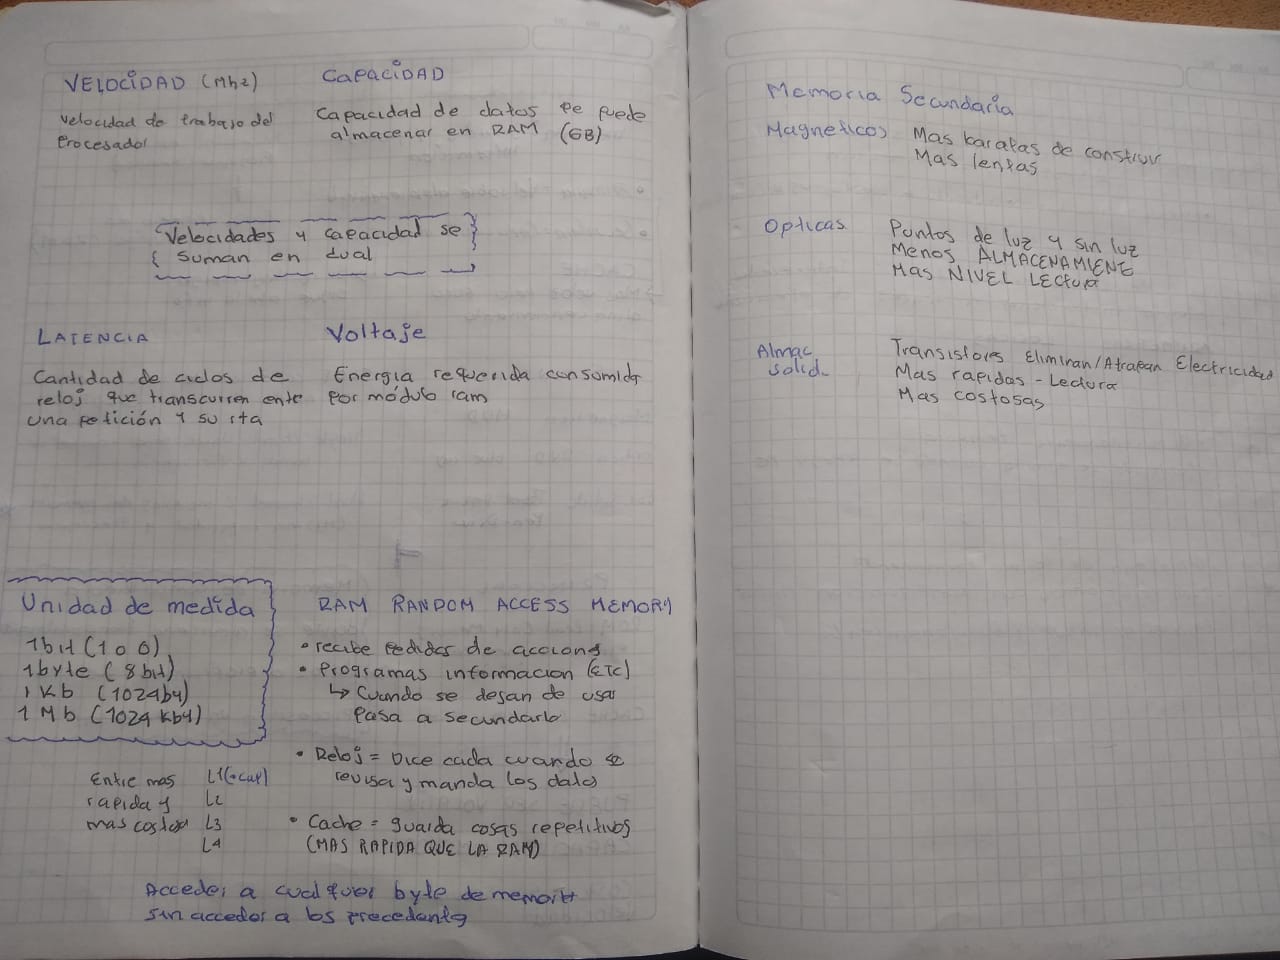 VELOCIDAD (Mhz)
Velocidad de trabajo del
Procesador
CAPACIDAD
Capacidad de datos pe puede
almacenar en RAM (GB)
Velocidades y capacidad se
suman en dual
LATENCIA
Cantidad de ciclos de
reloj que transcurren ente
una petición y su rta
Voltaje
Energia requerida consumida
por módulo ram
Unidad de medida
1bit (1 o 0)
1byte (8bit)
1 Kb (1024by)
1 Mb (1024 Kby)
Entre mas
rapida y
mas costosa
L1
L2
L3
L4
RAM RANDOM ACCESS MEMORY
• recibe pedidos de acciones
• Programas informacion (ETC)
↳ Cuando se dejan de usar
pasa a secundario
• Reloj = Dice cada cuando se
revisa y manda los datos
• Cache = guarda cosas repetitivos
(MAS RAPIDA QUE LA RAM)
Acceder a cualquier byte de memoria
sin acceder a los precedentes
Memoria Secundaria
Magneticos
Mas baratas de construir
Mas lentas
Opticas
Puntos de luz y sin luz
Menos ALMACENAMIENE
Mas NIVEL LECtura
Almac
solid
Transistores Eliminan/Atrapan Electricidad
Mas rapidas - Lectura
Mas costosas